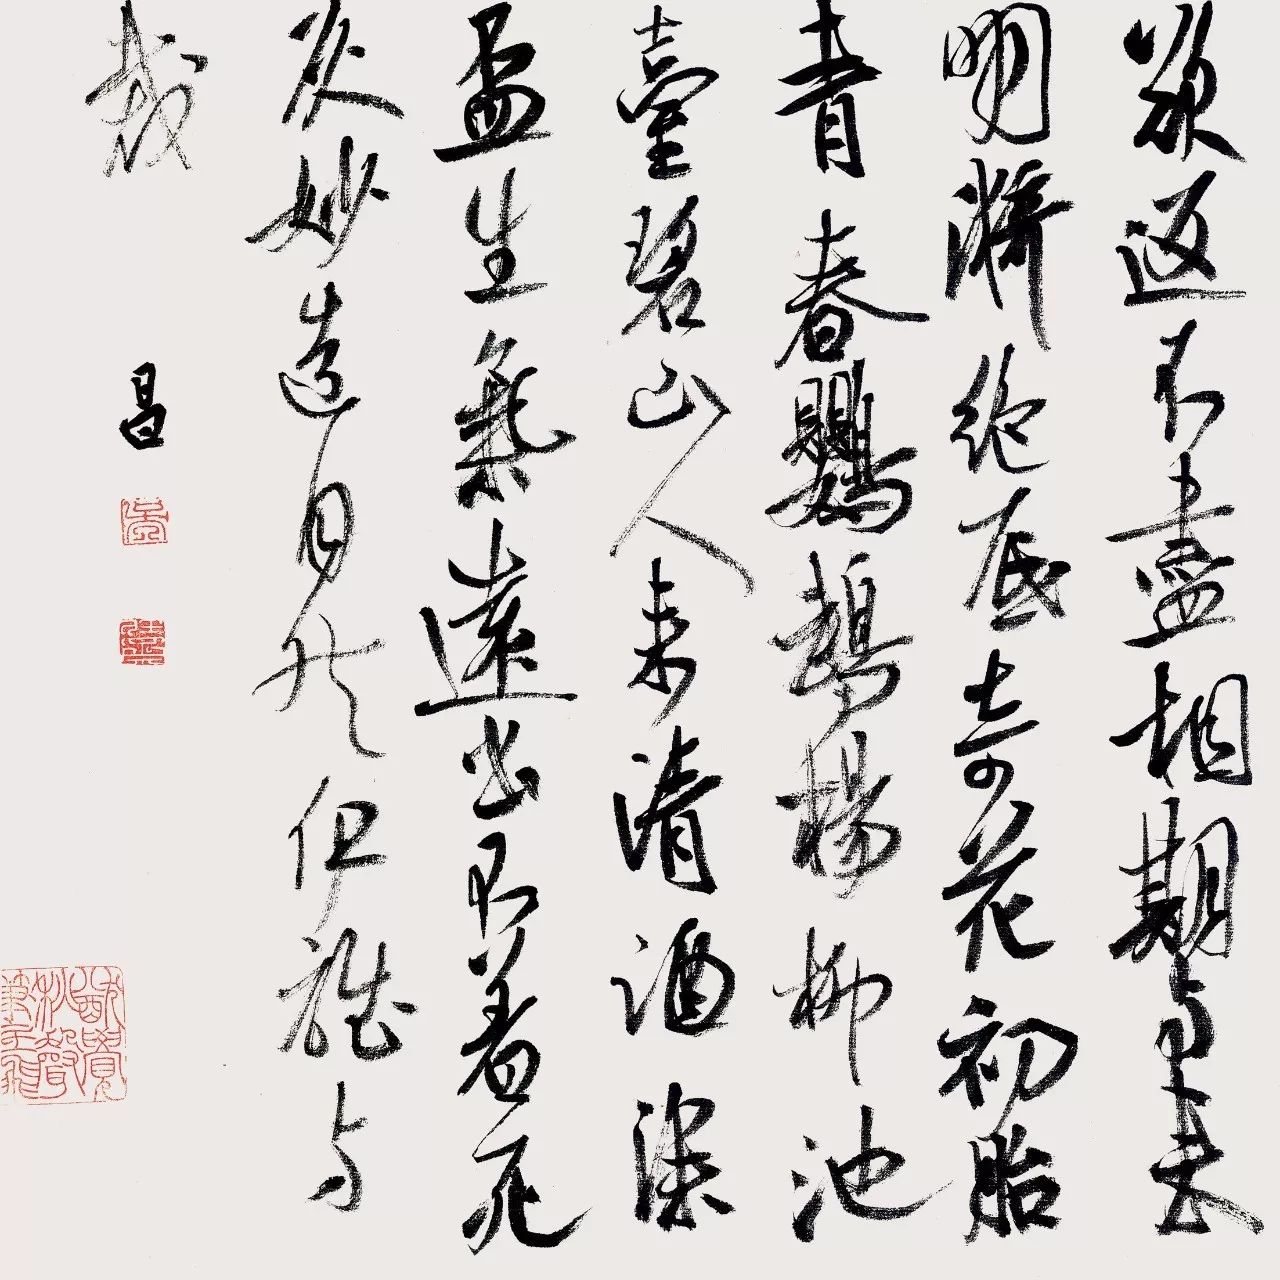 欲返不盡相期與来
明漪絕底奇花初胎
青春鸚鵡楊柳池
臺碧山人来清酒深
盃生氣遠出不着死
灰妙造自然伊誰与
裁
昌